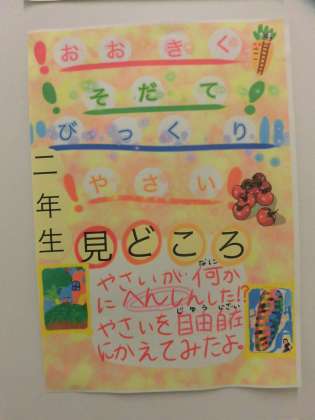 おおきく
そだて
びっくり
やさい！
二年生
見どころ
やさいが何か
なに
にへんしんした!?
じゆうじざい
やさいを自由自在
にかえてみたよ。